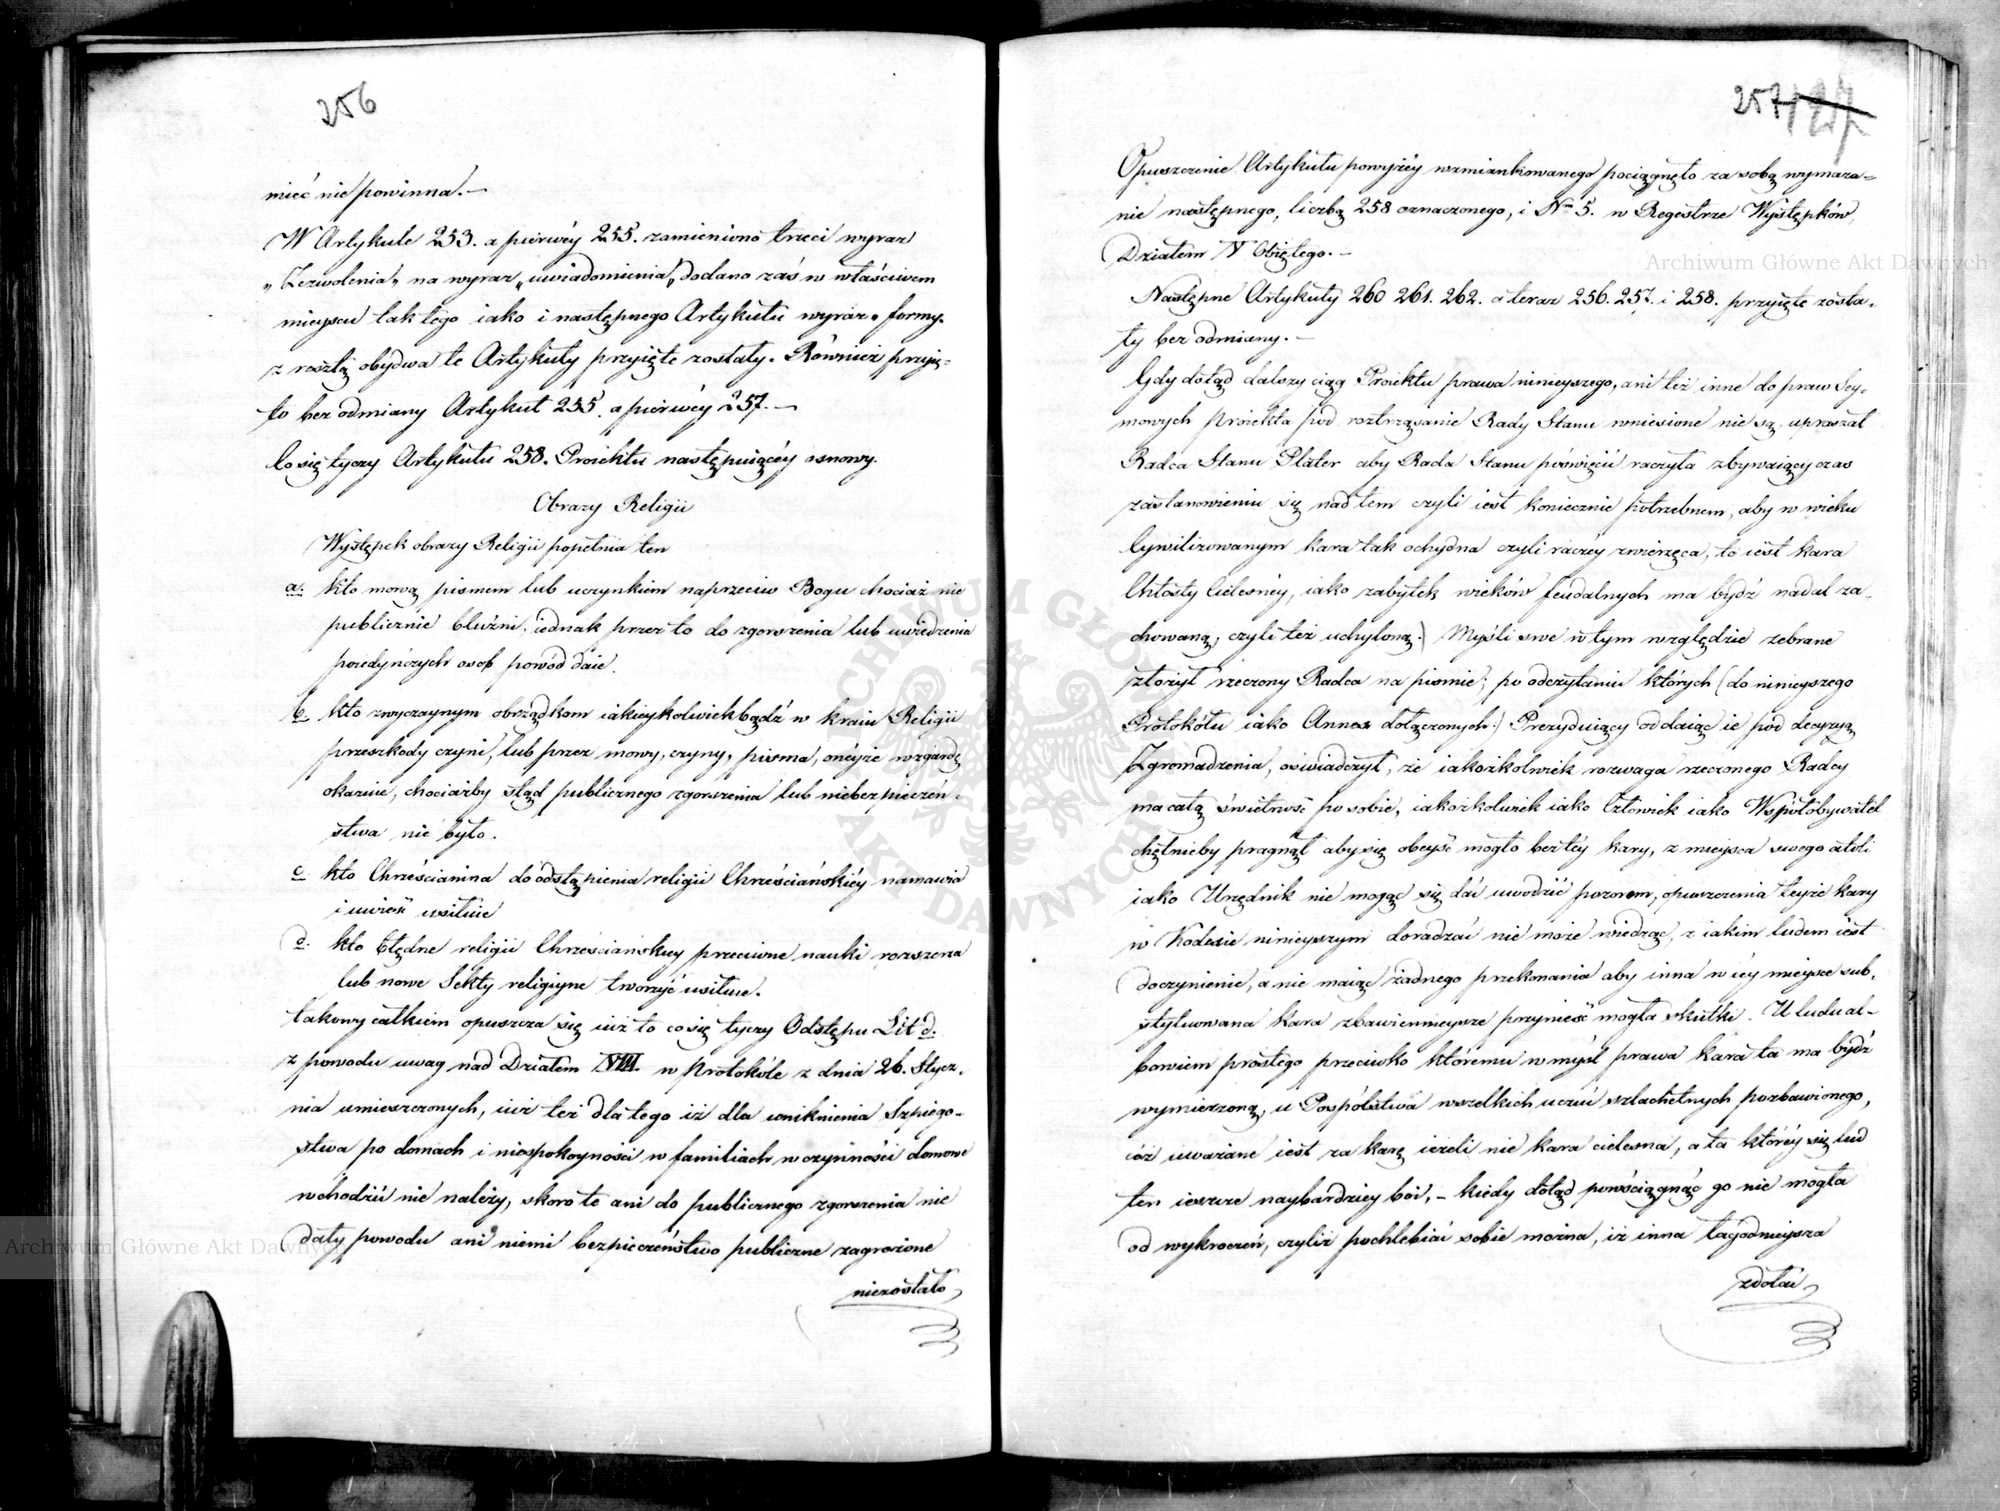 256
mieć nie powinna.—
W Artykule 253. a pierwéy 255. zamieniono trzeci wyraz
„Zezwolenia„ na wyraz „uwiadomienia„ dodano zaś w właściwem
mieyscu tak tego iako i następnego Artykułu wyraz „formy„
z resztą obydwa te Artykuły przyięte zostały. Również przyię=
to bez odmiany Artykuł 255. a pierwéy 257.—
Co się tyczy Artykułu 258. Proiektu następuiącéy osnowy.
Obrazy Religii
Występek obrazy Religii popełnia ten
a. kto mową pismem lub uczynkiem naprzeciw Bogu chociaż nie
publicznie bluźni, iednak przez to do zgorszenia lub uwiedzenia
poiedyńczych osob powód daie.
b. kto zwyczaynym obrządkom iakieykolwiekbądź w kraiu Religii
przeszkody czyni, lub przez mowy, czyny, pisma, onéyże wzgardę
okazuie, chociażby ztąd publicznego zgorszenia lub niebezpieczeń=
stwa nie było.
c. kto Chrześcianina do odstąpienia religii Chrześciańskiéy namawia
i uwieść usiłuie
d. kto błędne religii Chrześciańskiey przeciwne nauki rozszerza
lub nowe Sekty religiyne tworzyć usiłuie.
takowy całkiem opuszcza się iuż to co się tyczy Odstępu Lit d.
z powodu uwag nad Działem VIII. w Protokóle z dnia 26. Stycz=
nia umieszczonych, iuż też dla tego iż dla uniknienia Szpiego=
stwa po domach i niespokoyności w familiach w czynności domowe
wchodzić nie należy, skoro te ani do publicznego zgorszenia nie
dały powodu ani niemi bezpieczeństwo publiczne zagrożone
niezostało
257
Opuszczenie Artykułu powyżéy wzmiankowanego pociągnęło za sobą wymaza=
nie następnego, liczbą 258 oznaczonego, i Nro 5. w Regestrze Występków,
Działem V Obiętego.—
Następne Artykuły 260 261. 262. a teraz 256. 257. i 258. przyięte zosta=
ły bez odmiany.—
Gdy dotąd dalszy ciąg Proiektu prawa ninieyszego, ani też inne do praw Sey=
mowych proiekta pod roztrząsanie Rady Stanu wniesione nie są, upraszał
Radca Stanu Plater aby Rada Stanu poświęcić raczyła zbywaiący czas
zastanowieniu się nad tem czyli iest koniecznie potrzebnem, aby w wieku
Cywilizowanym kara tak ochydna czyli raczéy zwierzęca, to iest kara
Chłosty Cielesnéy, iako zabytek wieków feudalnych ma bydź nadal za=
chowaną, czyli też uchyloną.) Myśli swe w tym względzie zebrane
złożył rzeczony Radca na piśmie; po odczytaniu których (do ninieyszego
Protokółu iako Annex dołączonych:) Prezyduiący oddaiąc ie pod decyzyą
Zgromadzenia, oświadczył, że iakożkolwiek rozwaga rzeczonego Radcy
ma całą świetność po sobie, iakożkolwiek iako Człowiek iako Współobywatel
chętnieby pragnął aby się obeyść mogło bez téy kary, z mieysca swego atoli
iako Urzędnik nie mogąc się dać uwodzić pozorom, opuszczenia teyże kary
w Kodexie ninieyszym doradzać nie może wiedząc, z iakim ludem iest
doczynienie, a nie maiąc żadnego przekonania aby inna w iéy mieysce sub=
stytuowana kara zbawiennieysze przynieść mogła skutki. U ludu al=
bowiem prostego przeciwko któremu w myśl prawa kara ta ma bydź
wymierzoną, u Pospólstwa wszelkich uczuć szlachetnych pozbawionego,
cóż uważane iest za karę ieżeli nie kara cielesna, a ta któréy się lud
ten ieszcze naybardziey boi,— kiedy dotąd powściągnąć go nie mogła
od wykroczeń, czyliż pochlebiać sobie można, iż inna łagodnieysza
zdoła
Archiwum Główne Akt Dawnych
Archiwum Główne Akt Dawnych
ARCHIWUM GŁÓWNE
AKT DAWNYCH